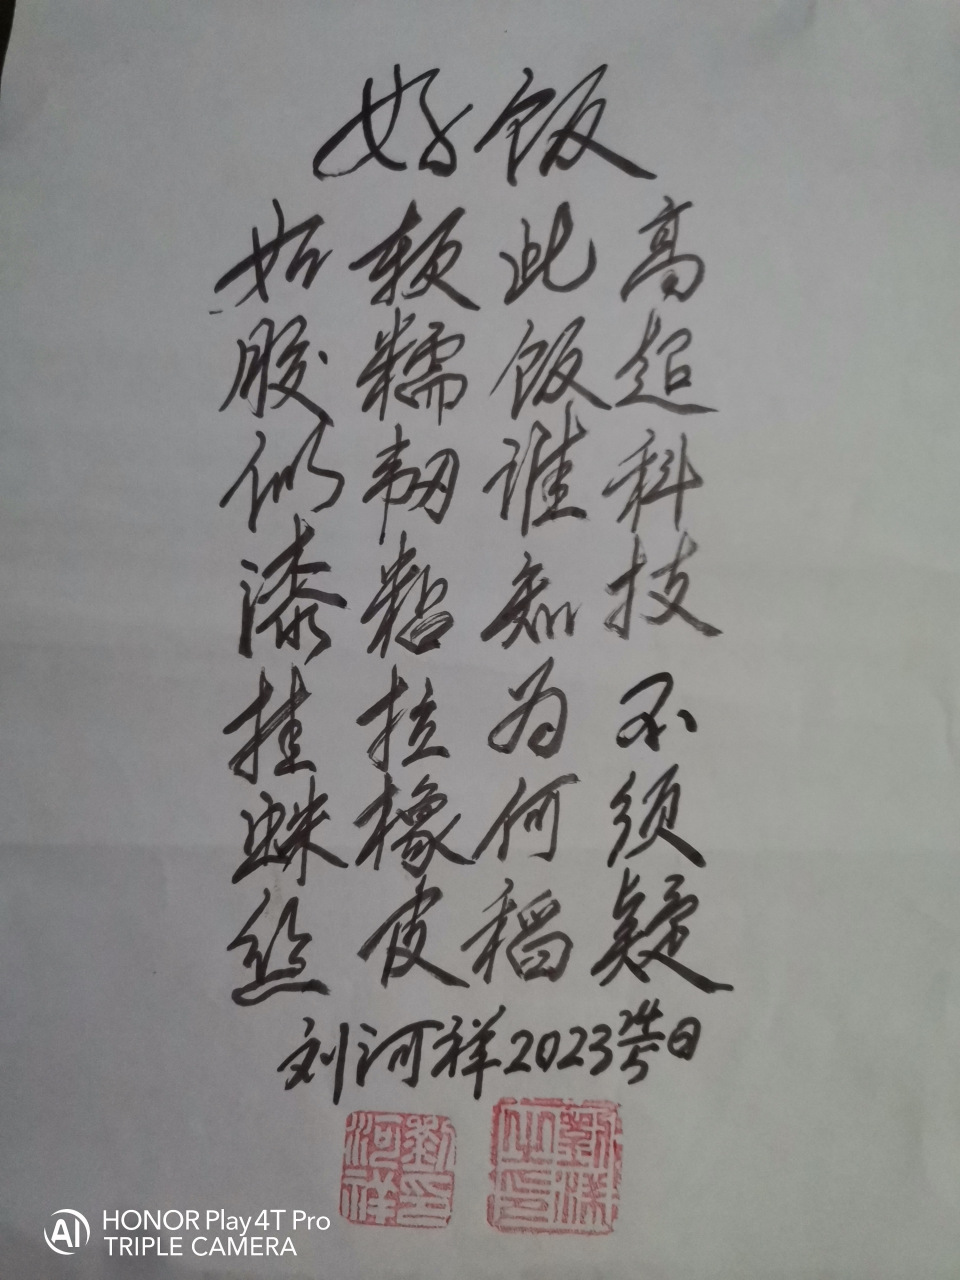 好饭
如胶似漆挂蛛丝
软糯韧粘拉橡皮
此饭谁知为何稻
高超科技不须疑
刘河祥2023 日
刘印河祥
HONOR Play4T Pro
TRIPLE CAMERA